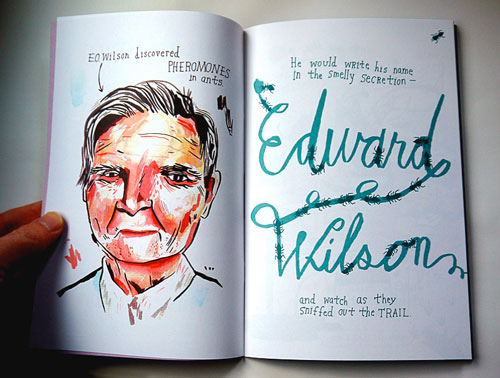 EO Wilson discovered
PHEROMONES
in ants.
He would write his name
in the smelly secretion –
Edward
Wilson
and watch as they
sniffed out the TRAIL.